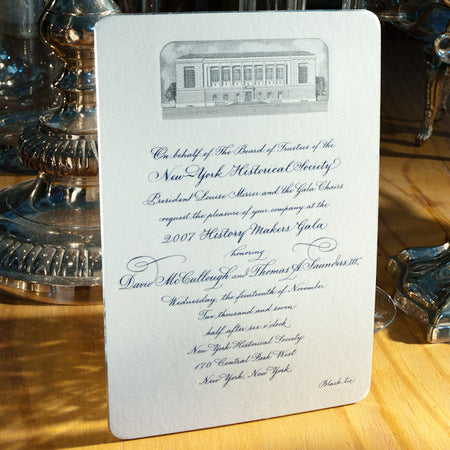 On behalf of The Board of Trustees of the
New-York Historical Society
President Louise Mirrer and the Gala Chairs
request the pleasure of your company at the
2007 History Makers Gala
honoring
David McCullough and Thomas A. Saunders III
Wednesday, the fourteenth of November
Two thousand and seven
half after six o'clock
New-York Historical Society
170 Central Park West
New York, New York
Black tie